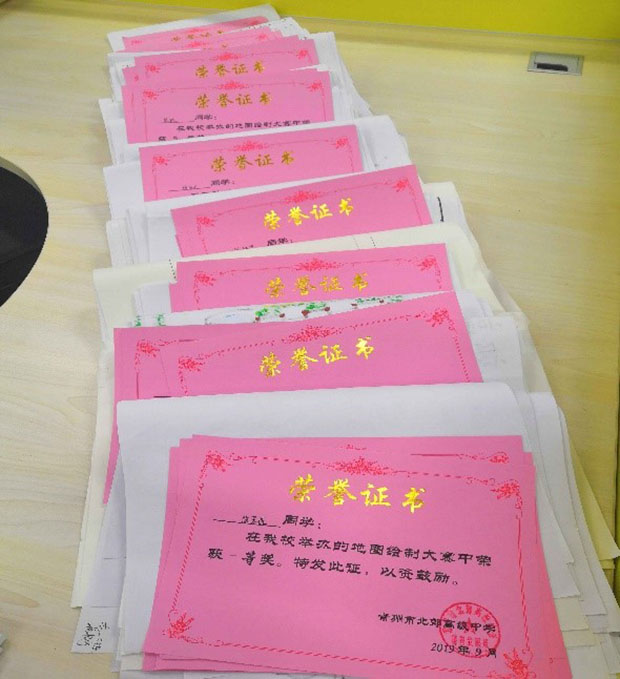 荣誉证书
荣誉证书
同学：
在我校举办的地图绘制大赛中荣
荣誉证书
同学：
荣誉证书
同学：
荣誉证书
荣誉证书
荣誉证书
同学：
在我校举办的地图绘制大赛中荣
获一等奖。特发此证，以资鼓励。
常州市北郊高级中学
2019年9月